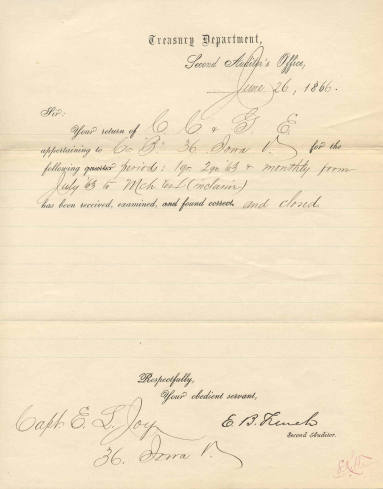 Treasury Department,
Second Auditor's Office,
June 26, 1866.
Sir:
Your return of C C & G E
appertaining to Co. B. 36 Iowa V for the
following quarter periods: 1 qr 2 qr '63 & monthly from
July '63 to Mch
has been received, examined, and found correct. and closed
Respectfully,
Your obedient servant,
Capt. E. L. Joy E. B. French
Second Auditor.
36. Iowa V.